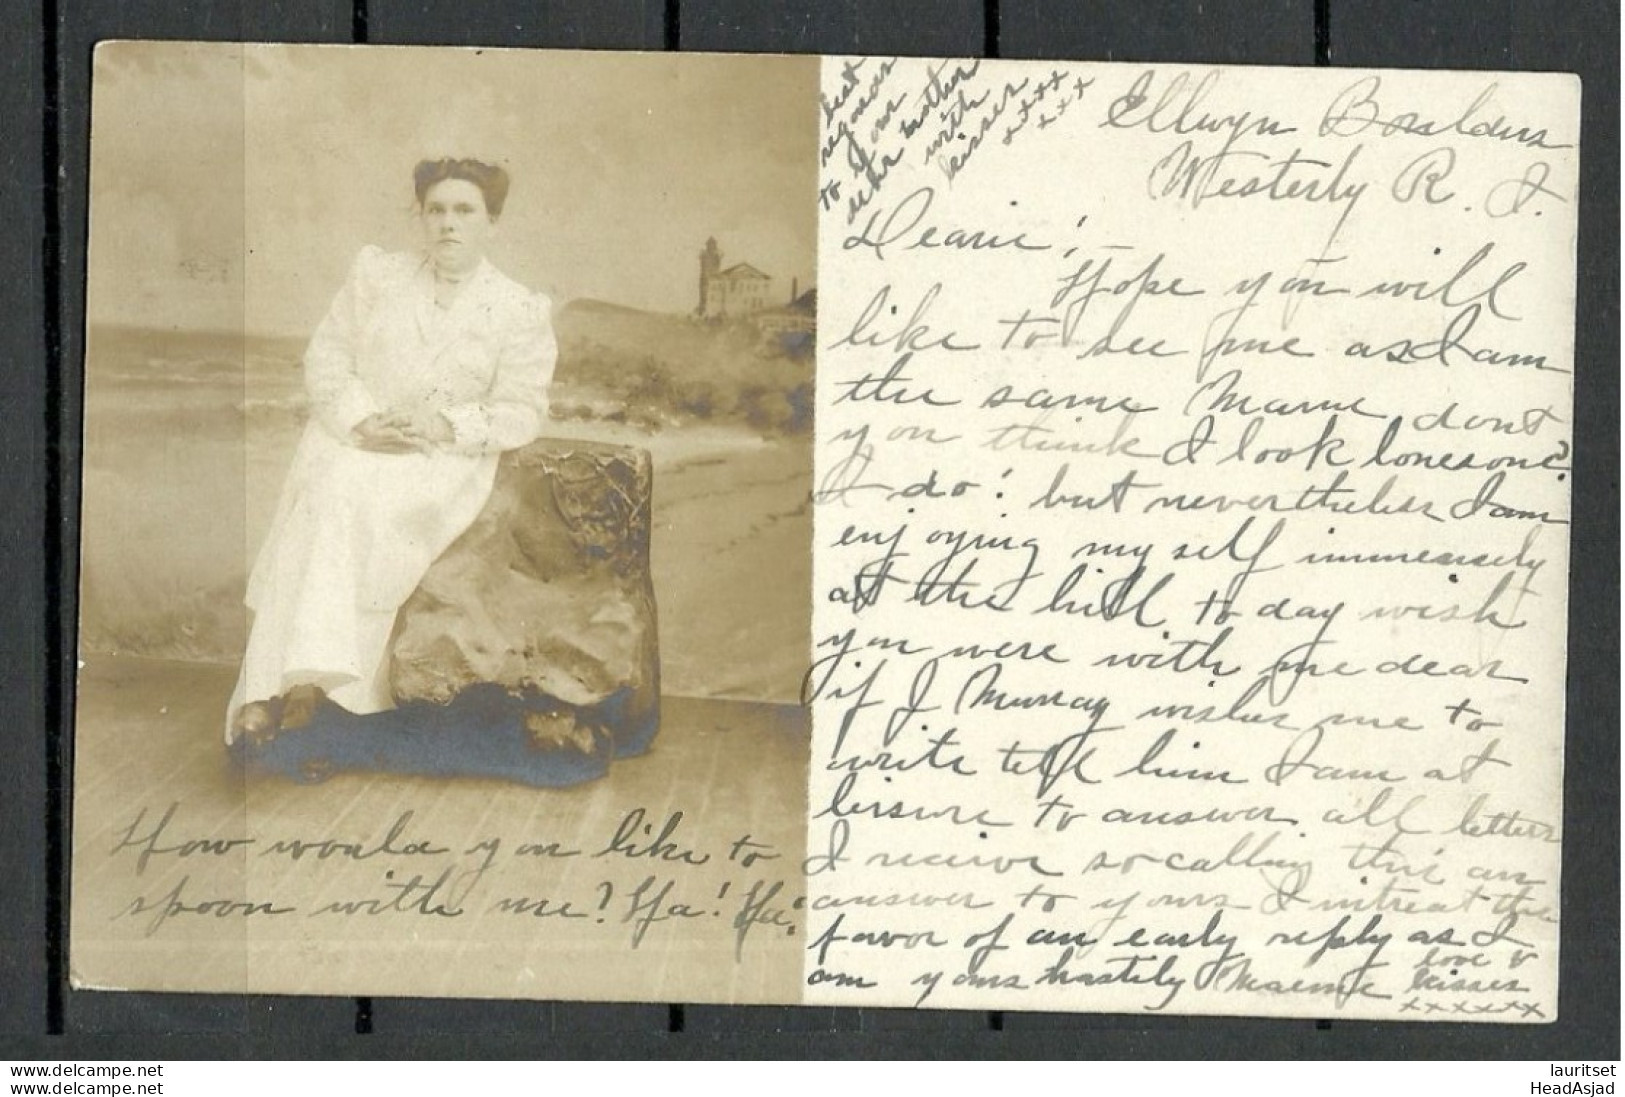 best
regards
to your
dear mother
with
kisses
xxxxx
xxx
Ellwyn Boulders
Westerly R. I.
Dearie!—
Hope you will
like to see me as I am
the same Mame dont
you think I look lonesome?
I do! but nevertheless I am
enjoying my self immensely
at the hill to day wish
you were with me dear
if J Murray wishes me to
write tell him I am at
leisure to answer all letters
I receive so calling this an
answer to yours I intreat the
favor of an early reply as I
am yours hastily Maeme love &
kisses
xxxxxxx
How would you like to
spoon with me? Ha! Ha!
www.delcampe.net
www.delcampe.net
lauritset
HeadAsjad